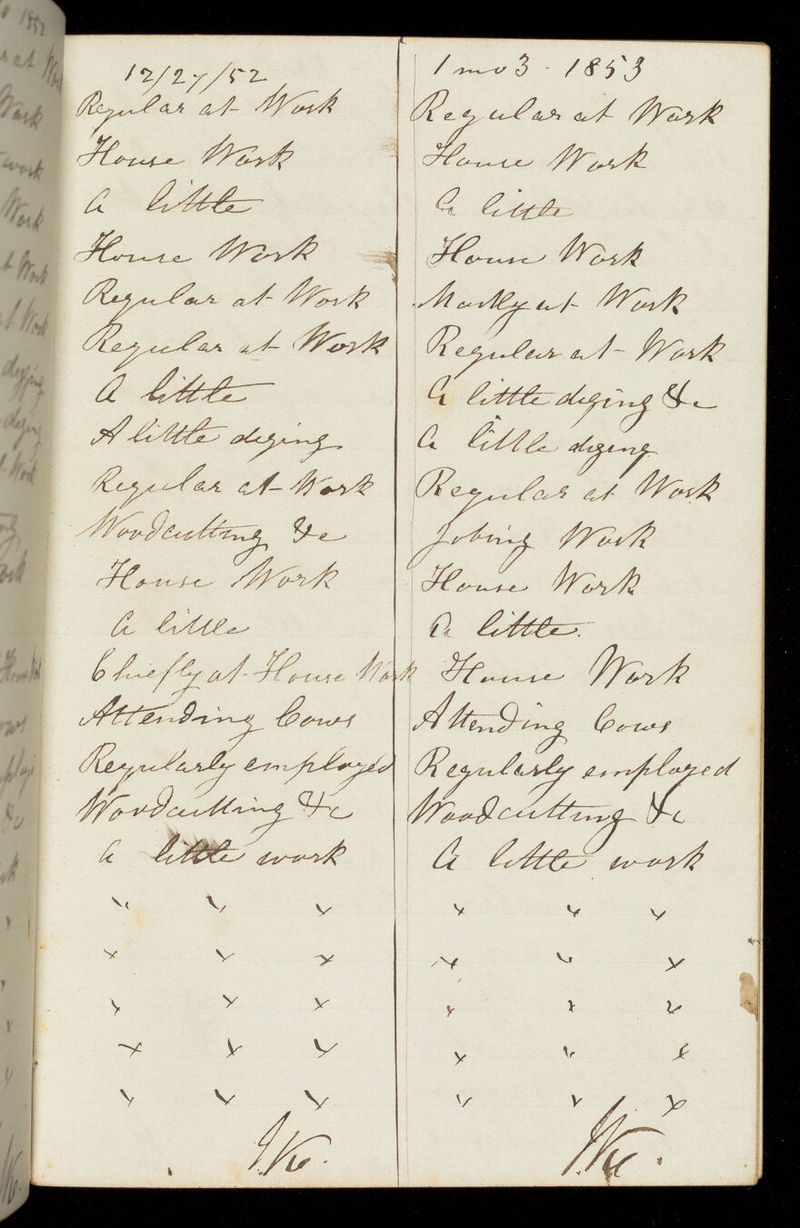 12/27/52
Regular at Work
House Work
a little
House Work
Regular at Work
Regular at Work
a little
A little diging
Regular at Work
Woodcutting &c
House Work
a little
Chiefly at House Work
Attending Cows
Regularly employed
Woodcutting &c
a little work
" " "
" " "
" " "
" " "
" " "
1 mo 3 - 1853
Regular at Work
House Work
a little
House Work
Mostly at Work
Regular at Work
a little diging &c
a little diging
Regular at Work
Jobing Work
House Work
a little.
House Work
Attending Cows
Regularly employed
Woodcutting &c
a little work
" " "
" " "
" " "
" " "
" " "